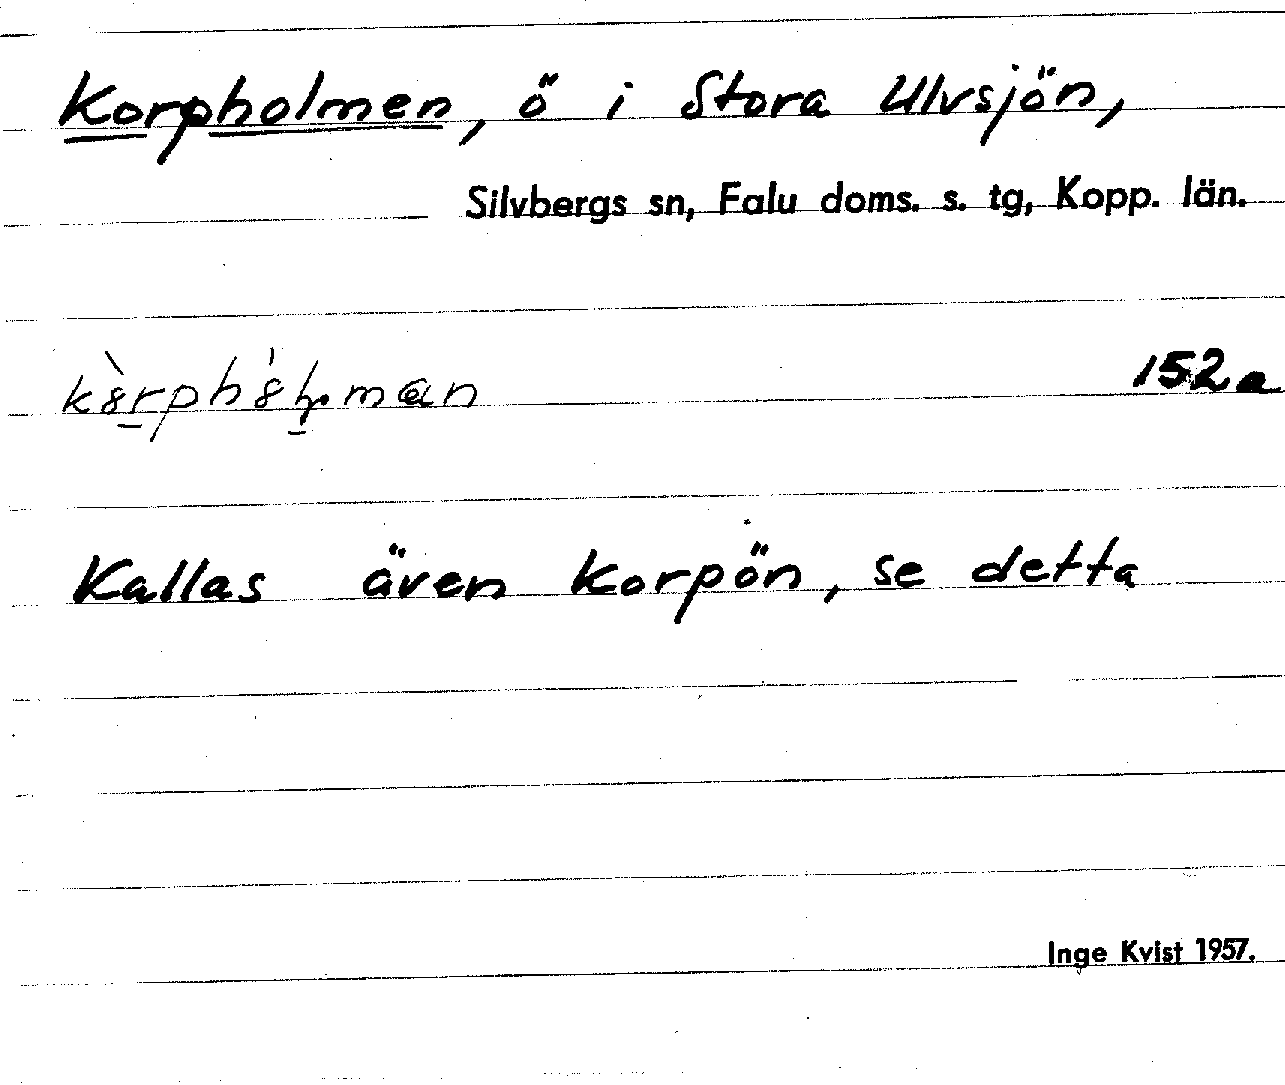 Korpholmen, ö i Stora Ulvsjön,
Silvbergs sn, Falu doms. s. tg, Kopp. län.
152a
Kallas även Korpön, se detta
Inge Kvist 1957.